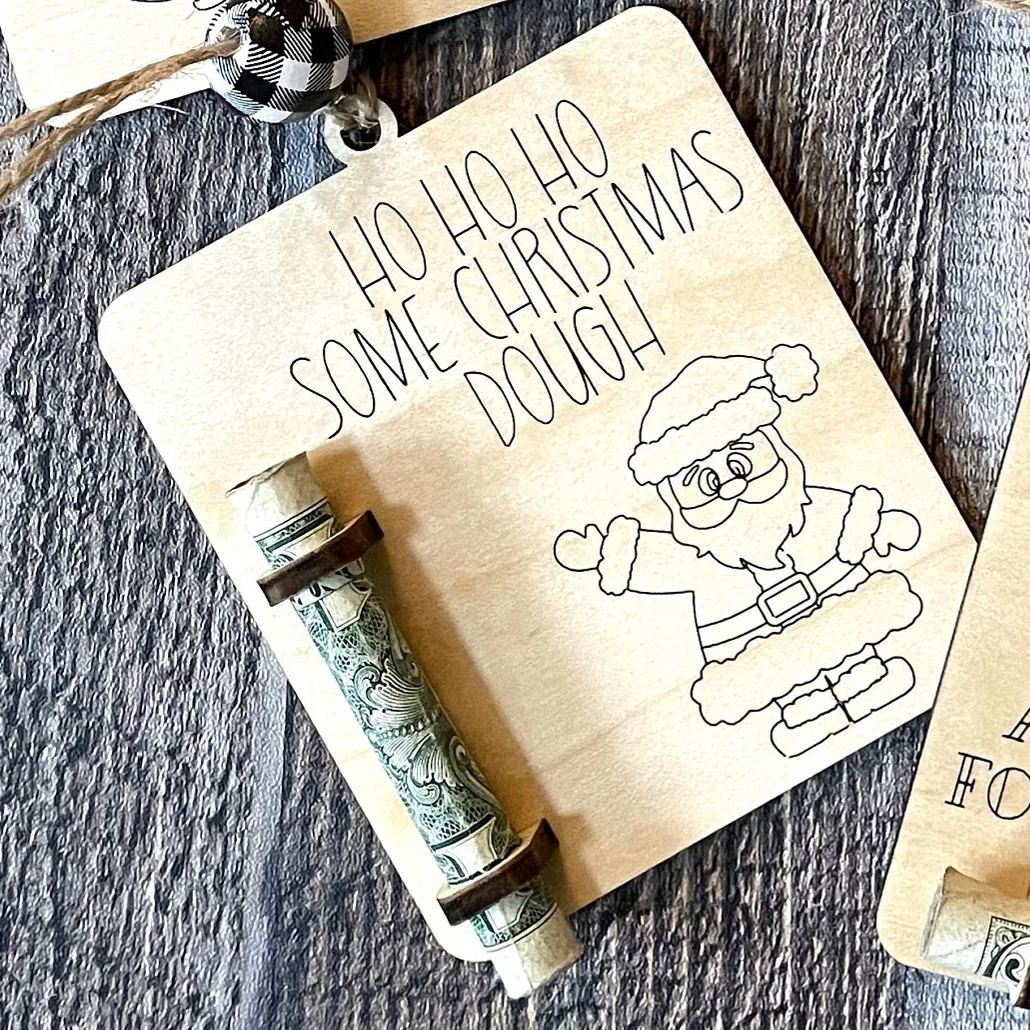 HO HO HO
SOME CHRISTMAS
DOUGH